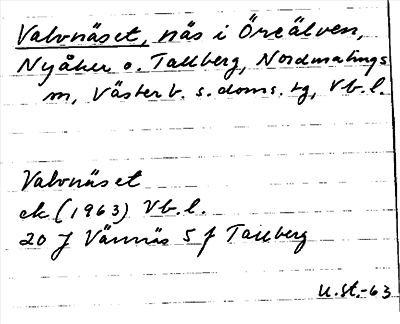 Valvnäset, näs i Öreälven,
Nyåker o. Tallberg, Nordmalings
sn, Västerb. s. doms. tg, Vb. l.
Valvnäset
ek (1963) Vb. l.
20 J Vännäs 5 f Tallberg
U.St.-63